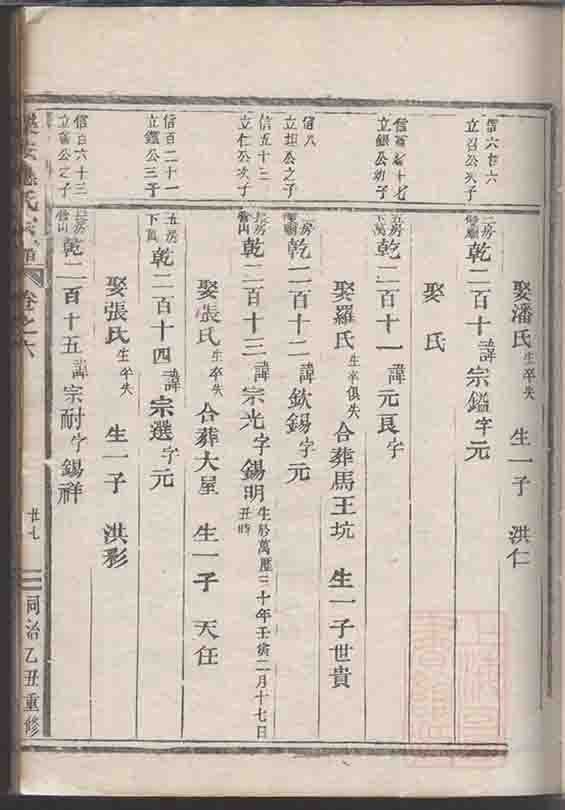 娶潘氏生卒失 生一子 洪仁
信六百六
立召公次子
二房
乾二百十諱宗鎰字元
娶氏
立銀公幼子
五房
下萬
乾二百十一諱元良字
娶羅氏生卒俱失 合葬馬王坑 生一子世貴
信八
立坦公之子
乾二百十二諱欽錫字元
信五十三
立仁公次子
長房
管山
乾二百十三諱宗光字錫明生於萬曆三十年壬寅二月十七日丑時
娶張氏生卒失 合葬大屋 生一子 天任
信百二十一
立鑑公三子
五房
下萬
乾二百十四諱宗選字元
娶張氏生卒失 生一子 洪彩
信百六十三
立公之子
長房
管山
乾二百十五諱宗耐字錫祥
氏宗譜 卷之六 廿七 同治乙丑重修